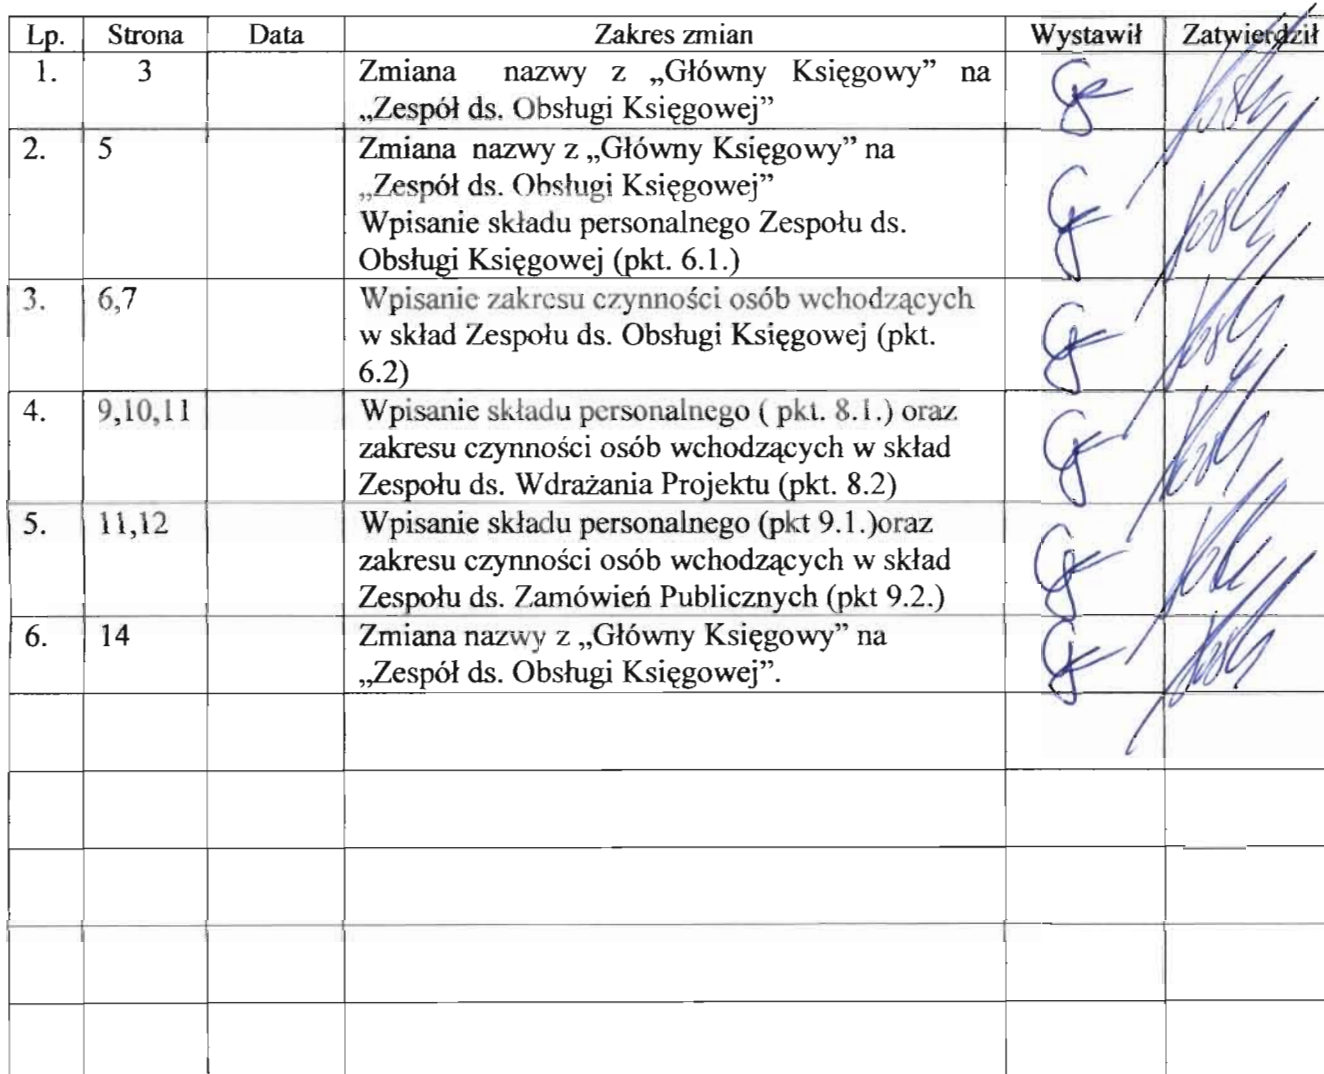 Lp. Strona Data Zakres zmian Wystawił Zatwierdził
1. 3 Zmiana nazwy z „Główny Księgowy” na
„Zespół ds. Obsługi Księgowej”
2. 5 Zmiana nazwy z „Główny Księgowy” na
„Zespół ds. Obsługi Księgowej”
Wpisanie składu personalnego Zespołu ds.
Obsługi Księgowej (pkt. 6.1.)
3. 6,7 Wpisanie zakresu czynności osób wchodzących
w skład Zespołu ds. Obsługi Księgowej (pkt.
6.2)
4. 9,10,11 Wpisanie składu personalnego ( pkt. 8.1.) oraz
zakresu czynności osób wchodzących w skład
Zespołu ds. Wdrażania Projektu (pkt. 8.2)
5. 11,12 Wpisanie składu personalnego (pkt 9.1.)oraz
zakresu czynności osób wchodzących w skład
Zespołu ds. Zamówień Publicznych (pkt 9.2.)
6. 14 Zmiana nazwy z „Główny Księgowy” na
„Zespół ds. Obsługi Księgowej”.